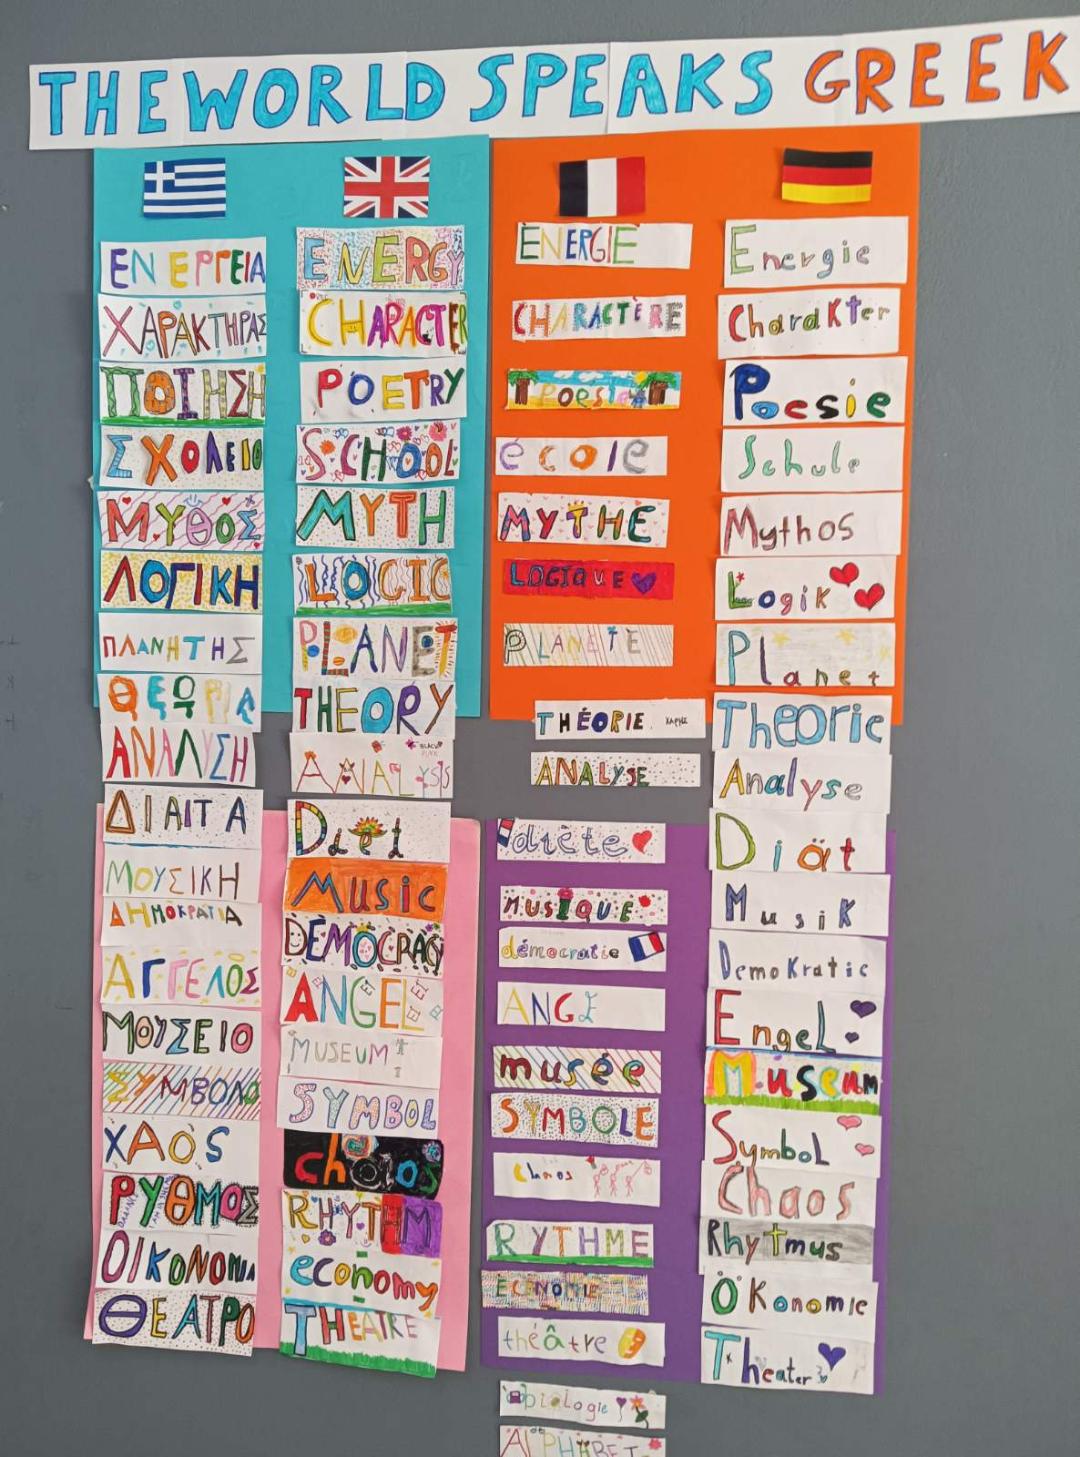 THE WORLD SPEAKS GREEK
ΕΝΕΡΓΕΙΑ ENERGY ÉNERGIE Energie
ΧΑΡΑΚΤΗΡΑΣ CHARACTER CHARACTÈRE Charakter
ΠΟΙΗΣΗ POETRY POESIE Poesie
ΣΧΟΛΕΙΟ SCHOOL école Schule
ΜΥΘΟΣ MYTH MYTHE Mythos
ΛΟΓΙΚΗ LOGIC LOGIQUE Logik
ΠΛΑΝΗΤΗΣ PLANET PLANETE Planet
ΘΕΩΡΙΑ THEORY THÉORIE ΧΑΡΗΣ Theorie
ΑΝΑΛΥΣΗ ANALYSIS BLACK PINK ANALYSE Analyse
ΔΙΑΙΤΑ Diet diète Diät
ΜΟΥΣΙΚΗ MUSIC MUSIQUE Musik
ΔΗΜΟΚΡΑΤΙΑ DEMOCRACY démocratie Demokratie
ΑΓΓΕΛΟΣ ANGEL ANGE Engel
ΜΟΥΣΕΙΟ MUSEUM musée Museum
ΣΥΜΒΟΛΟ SYMBOL SYMBOLE Symbol
ΧΑΟΣ chaos Chaos Chaos
ΡΥΘΜΟΣ RHYTHM RYTHME Rhytmus
ΟΙΚΟΝΟΜΙΑ economy ECONOMIE ÖKonomie
ΘΕΑΤΡΟ THEATRE théâtre Theater
biologie
ALPHABET